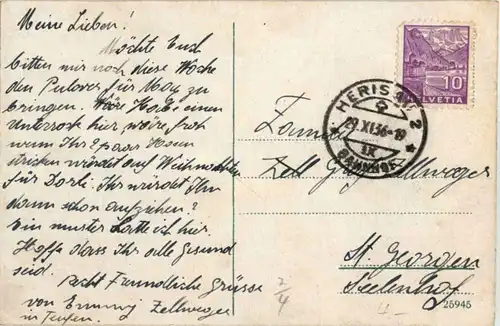 Meine Lieben!
Möchte Euch
bitten mir noch diese Woche
den Pulover für Max zu
bringen. Wäre Habe einen
Unterrock hier wäre froh
wenn Ihr 2 paar Hosen
stricken würdet auf Weihnachten
für Dorli. Ihr würdet Ihn
dann schon aufziehen?
Ein muster hätte ich hier.
Hoffe dass Ihr alle Gesund
seid.
recht Freundliche Grüsse
von Emmy Zellweger
in Teufen.
10
HELVETIA
HERISAU 2
29.XI.36-19
IX
BAHNHOF
Familie
Zellweger
St. Georgen
Seelenhof
2/4
4.-
25945